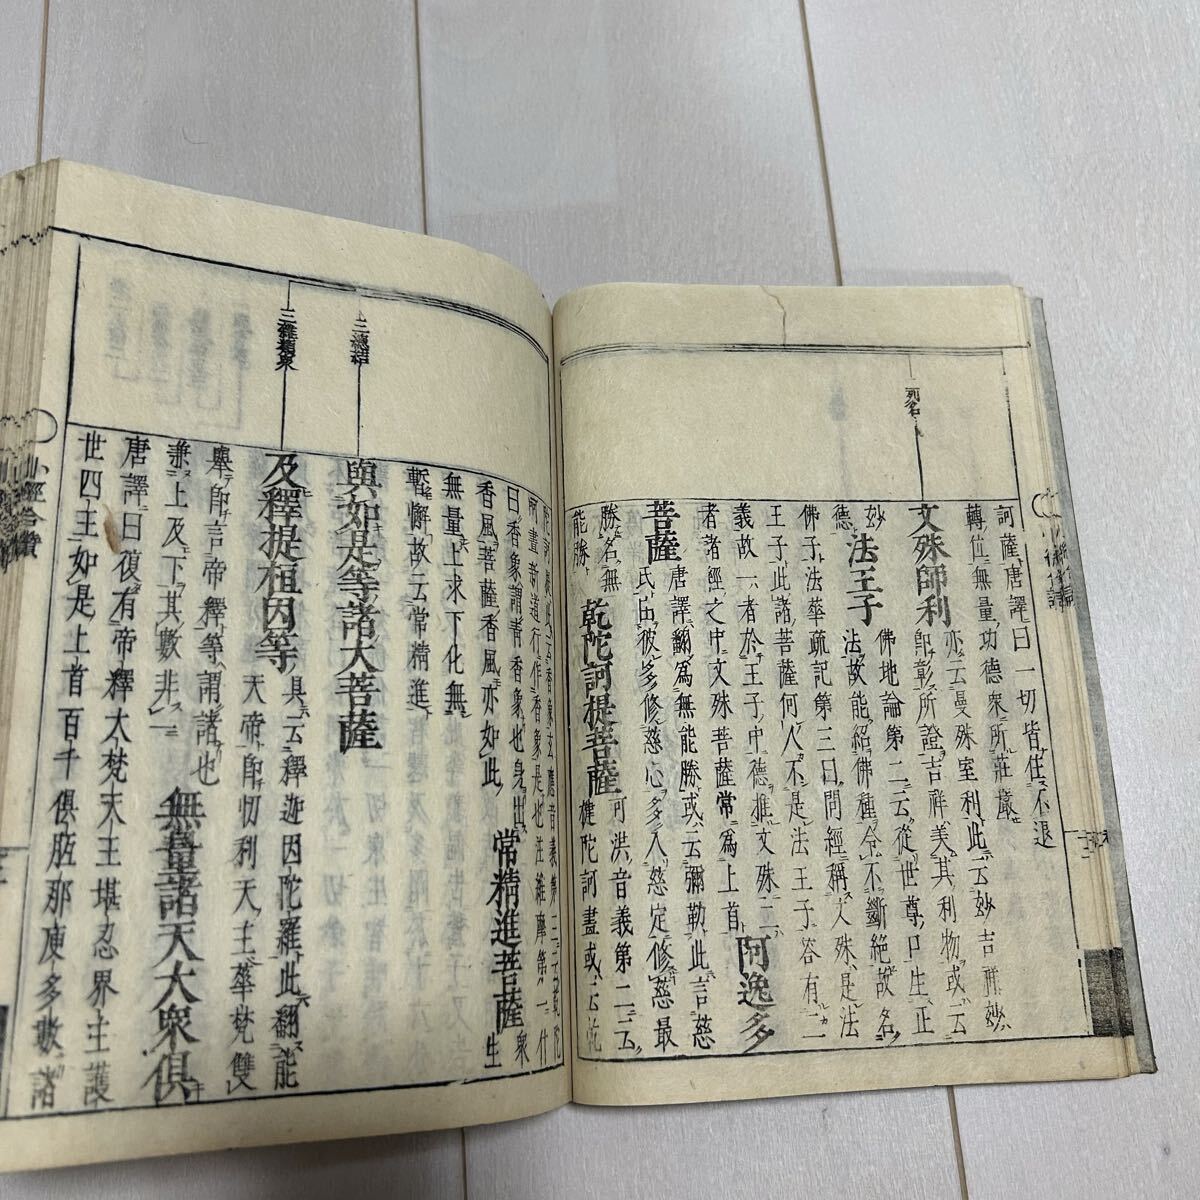 列名
訶薩唐譯曰一切皆住不退
轉位無量功德衆所莊嚴
文殊師利
亦云曼殊室利此云妙吉祥妙
卽彰所證吉祥美其利物或云
妙德
法王子
佛地論第二云從世尊口生正
法故能紹佛種令不斷絕故名
佛子法華疏記第三曰問經稱文殊是法
王子此諸菩薩何人不是法王子答有二
義故一者於王子中德推文殊二
者諸經之中文殊菩薩常爲上首
阿逸多
菩薩
唐譯翻爲無能勝或云彌勒此言慈
氏由彼多修慈心多入慈定修慈最
勝名無
能勝
乾陀訶提菩薩
可洪音義第二云
揵陀訶晝或云乾
香象玄應音義第三云乾陀
呵晝新道行作香象是也注維摩第一什
曰香象謂靑香象也身出
香風菩薩香風亦如此
常精進菩薩
衆生
無量上求下化無
暫懈故云常精進
三總結
與如是等諸大菩薩
三雜類衆
及釋提桓因等
具云釋迦因陀羅此翻能
天帝卽忉利天主華梵雙
擧卽言帝釋等謂諸也
兼上及下其數非一
無量諸天大衆俱
唐譯曰復有帝釋太梵天王堪忍界主護
世四王如是上首百千俱胝那庾多數諸
小經合讚